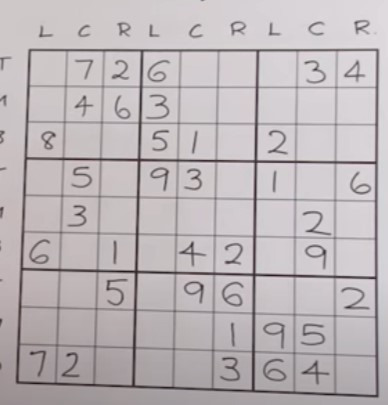 L C R L C R L C R.
T 7 2 6 3 4
4 6 3
B 8 5 1 2
5 9 3 1 6
3 2
6 1 4 2 9
5 9 6 2
1 9 5
7 2 3 6 4